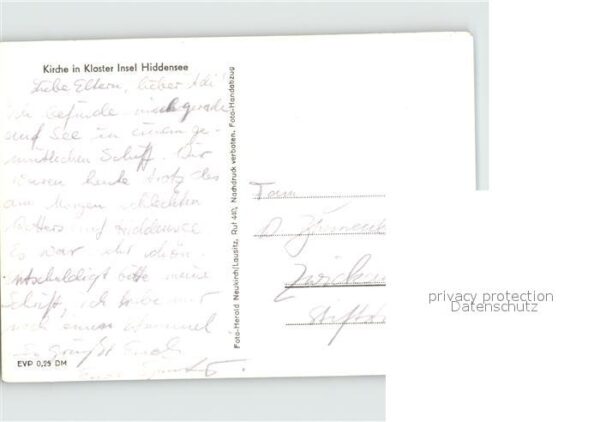 Kirche in Kloster Insel Hiddensee
Liebe Eltern, lieber Adi!
Ich befinde mich gerade
auf See in einem ge-
mütlichen Schiff. Wir
waren heute trotz des
am Morgen schlechten
Wetters auf Hiddensee
Es war sehr schön.
Entschuldigt bitte meine
Schrift, ich habe nur
noch einen Stummel
Es grüßt Euch
EVP 0,25 DM
Foto-Herold Neukirch/Lausitz, Ruf 440, Nachdruck verboten. Foto-Handabzug
Fam
privacy protection
Datenschutz